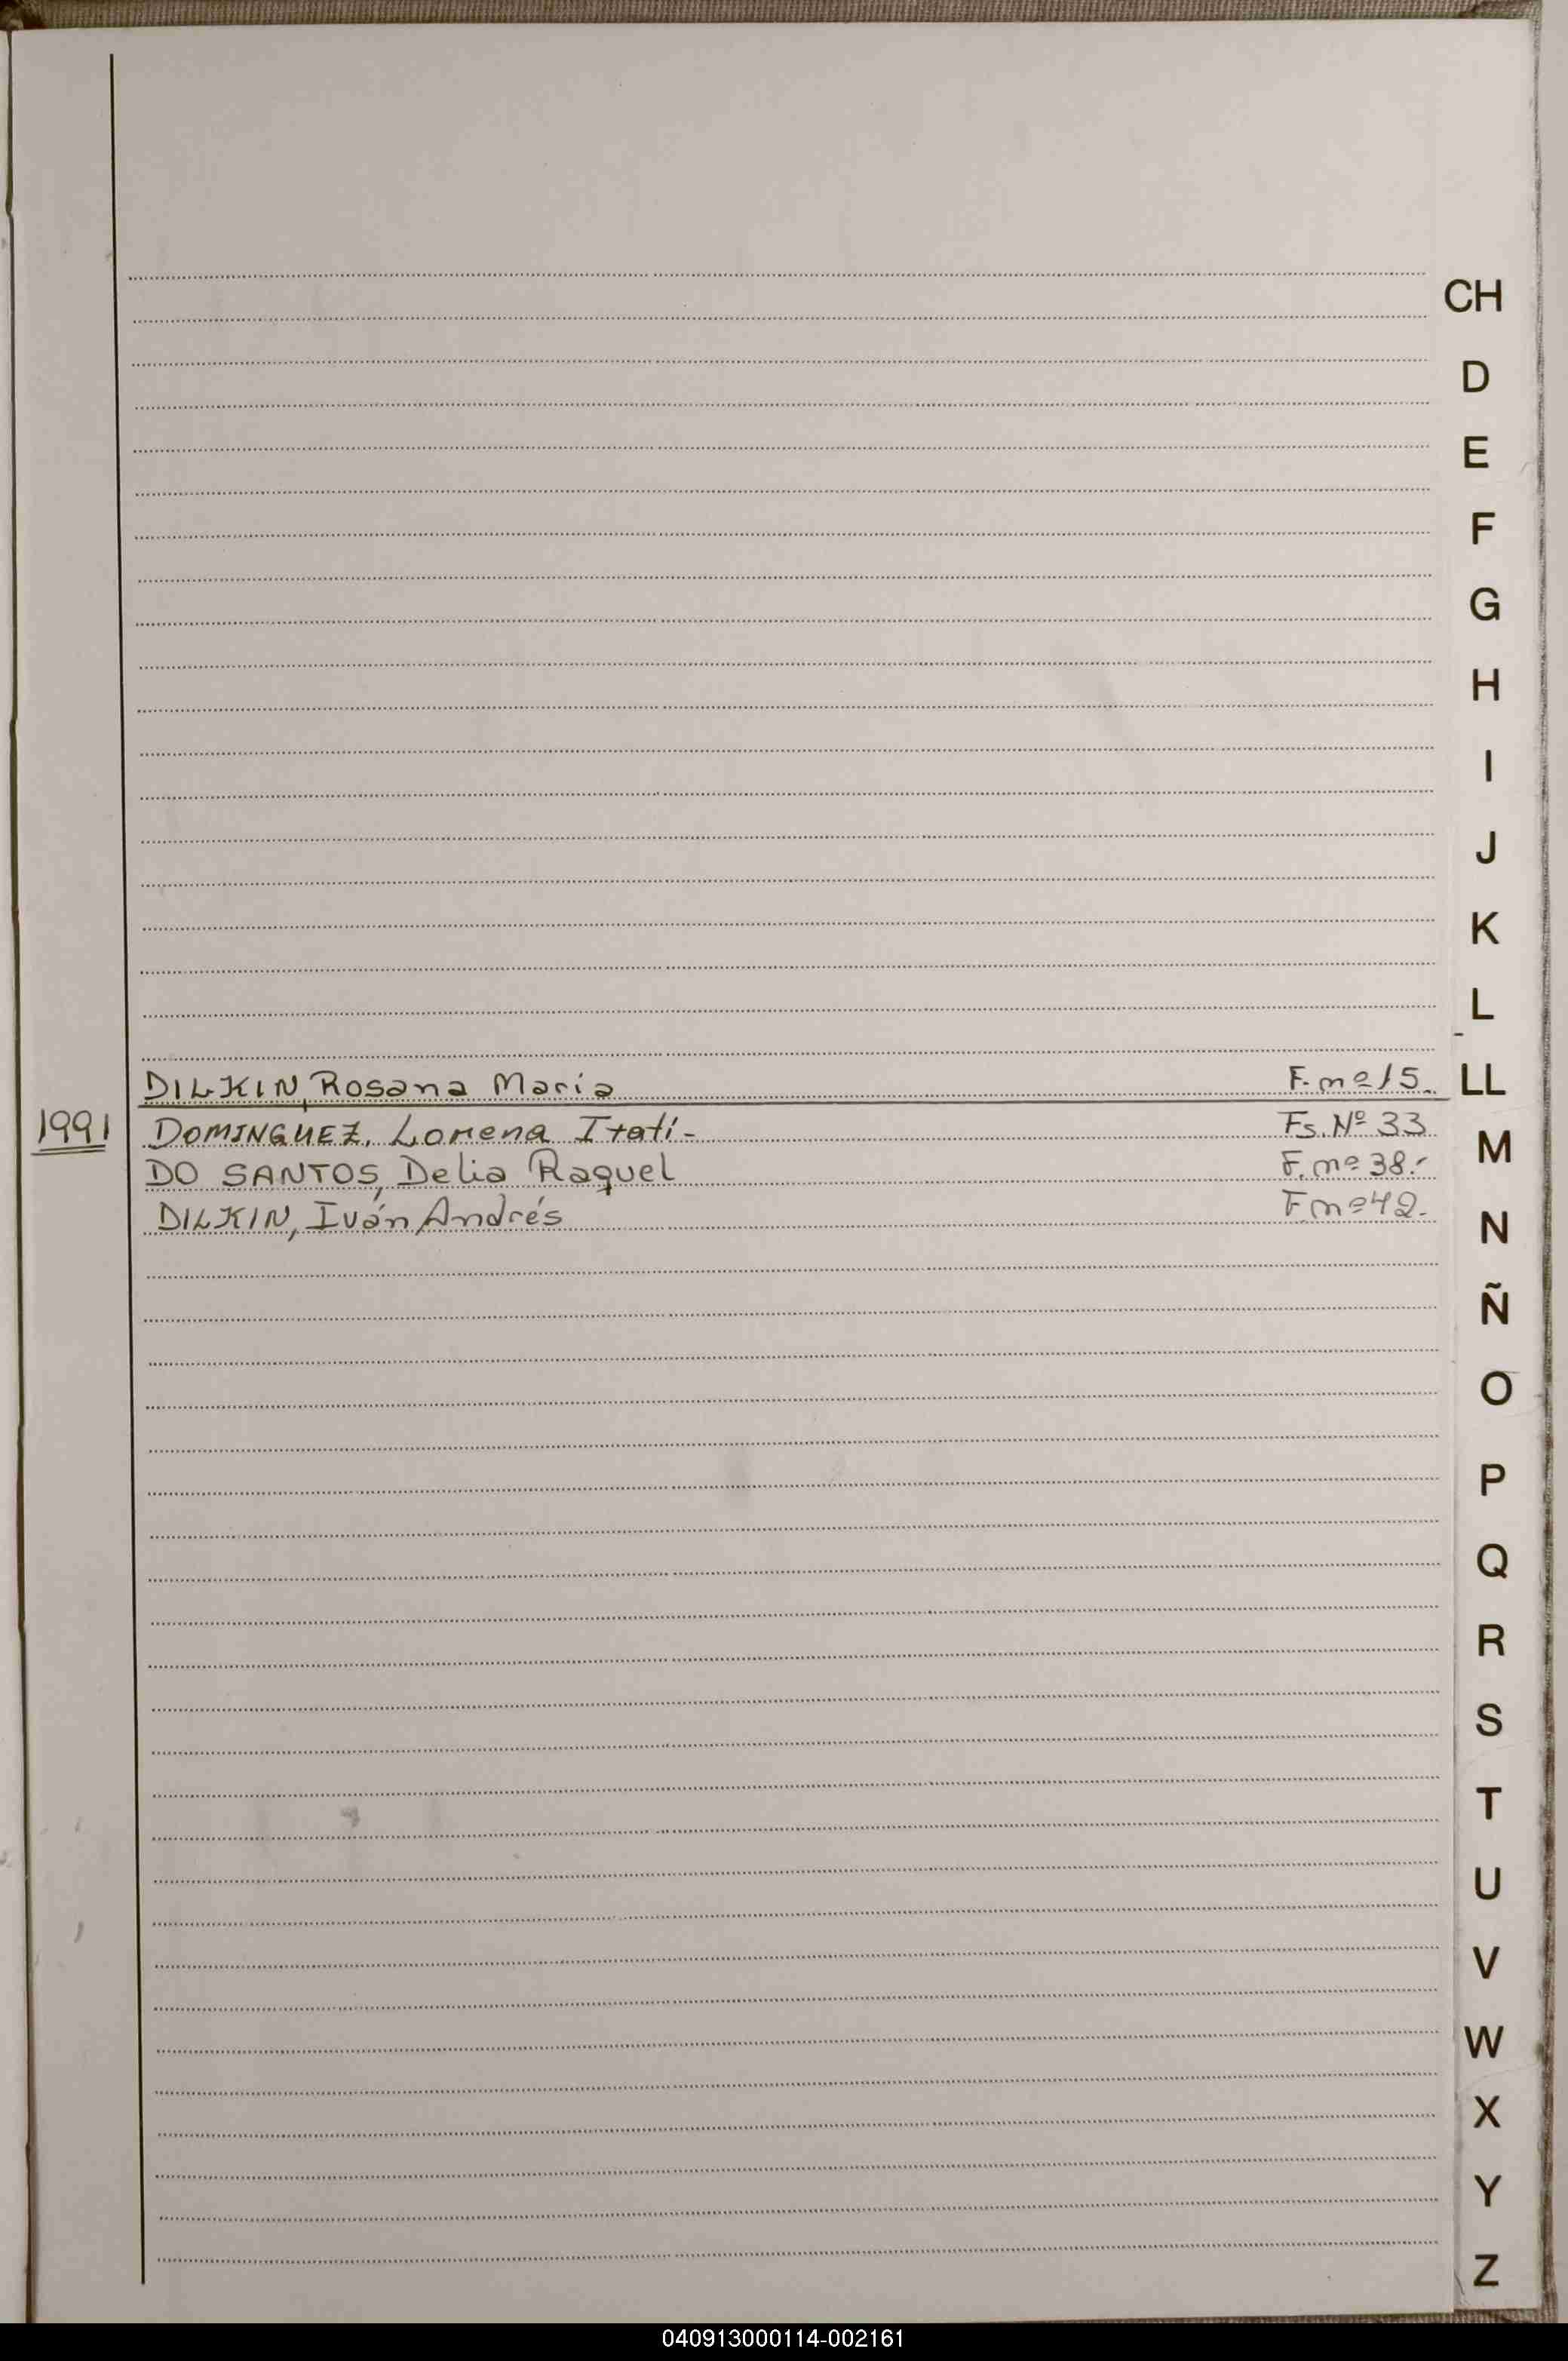 CH
D
E
F
G
H
I
J
K
L
DILKIN, Rosana Maria F. nº 15. LL
1991 DOMINGUEZ, Lorena Itatí- Fs. Nº 33 M
DO SANTOS, Delia Raquel F. nº 38.-
DILKIN, Iván Andrés F. nº 42. N
Ñ
O
P
Q
R
S
T
U
V
W
X
Y
Z
040913000114-002161